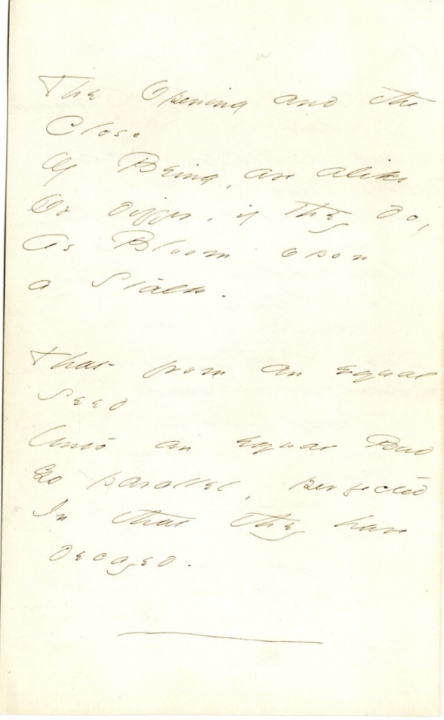 The Opening and the
Close
Of Being, are alike
Or differ, if they do,
As Bloom upon
a Stalk.
That from an equal
Seed
Unto an equal Bud
Go parallel, perfected
In that they have
decayed.